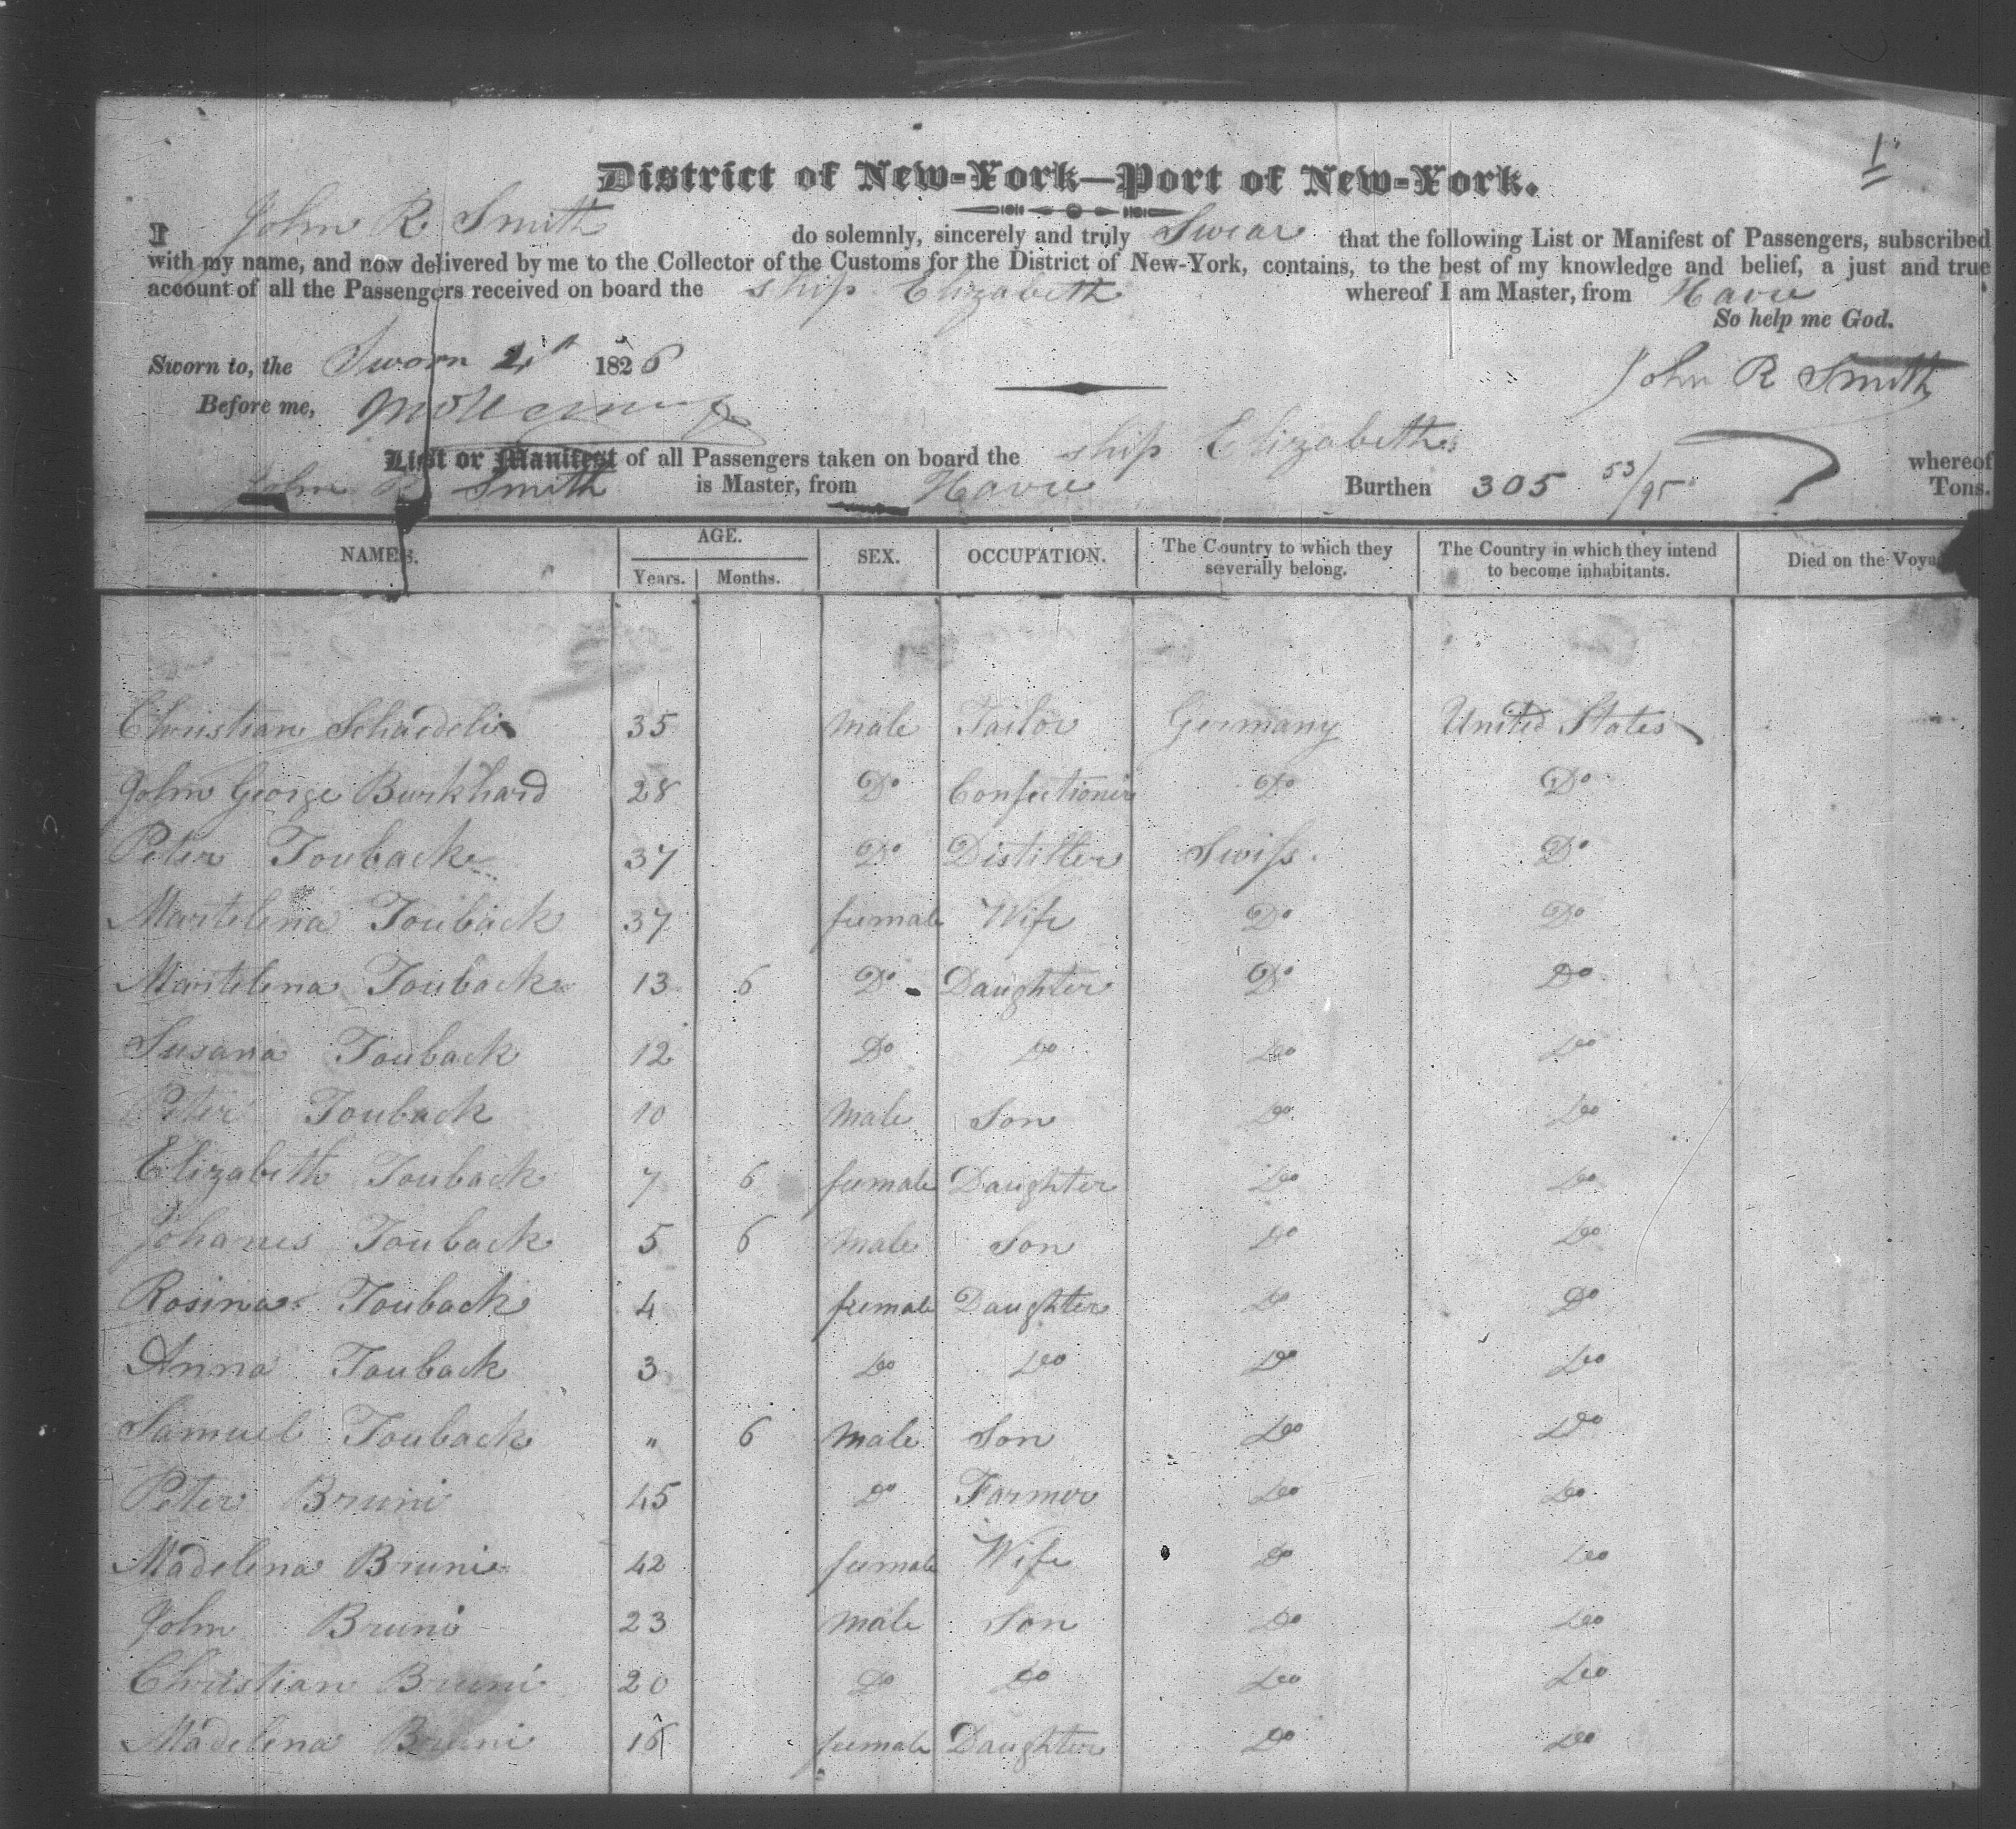 1
District of New-York—Port of New-York.
I John R Smith do solemnly, sincerely and truly Swear that the following List or Manifest of Passengers, subscribed
with my name, and now delivered by me to the Collector of the Customs for the District of New-York, contains, to the best of my knowledge and belief, a just and true
account of all the Passengers received on board the ship Elizabeth whereof I am Master, from Havre
So help me God.
Sworn to, the Sworn 1826
John R Smith
Before me,
List or Manifest of all Passengers taken on board the ship Elizabeth whereof
John R Smith is Master, from Havre Burthen 305 53/95 Tons.
NAMES. AGE. Years. Months. SEX. OCCUPATION. The Country to which they severally belong. The Country in which they intend to become inhabitants. Died on the Voya
Christian Schaedeli 35 Male Tailor Germany United States
John George Burkhard 28 Do Confectioner Do Do
Peter Touback 37 Do Distiller Swiss. Do
Martelena Touback 37 female Wife Do Do
Martelena Touback 13 6 Do Daughter Do Do
Susana Touback 12 Do Do Do Do
Peter Touback 10 Male Son Do Do
Elizabeth Touback 7 6 female Daughter Do Do
Johanes Touback 5 6 Male Son Do Do
Rosina Touback 4 female Daughter Do Do
Anna Touback 3 Do Do Do Do
Samuel Touback " 6 Male Son Do Do
Peter Bruni 45 Do Farmer Do Do
Madelena Bruni 42 female Wife Do Do
John Bruni 23 Male Son Do Do
Christian Bruni 20 Do Do Do Do
Madelena Bruni 16 female Daughter Do Do